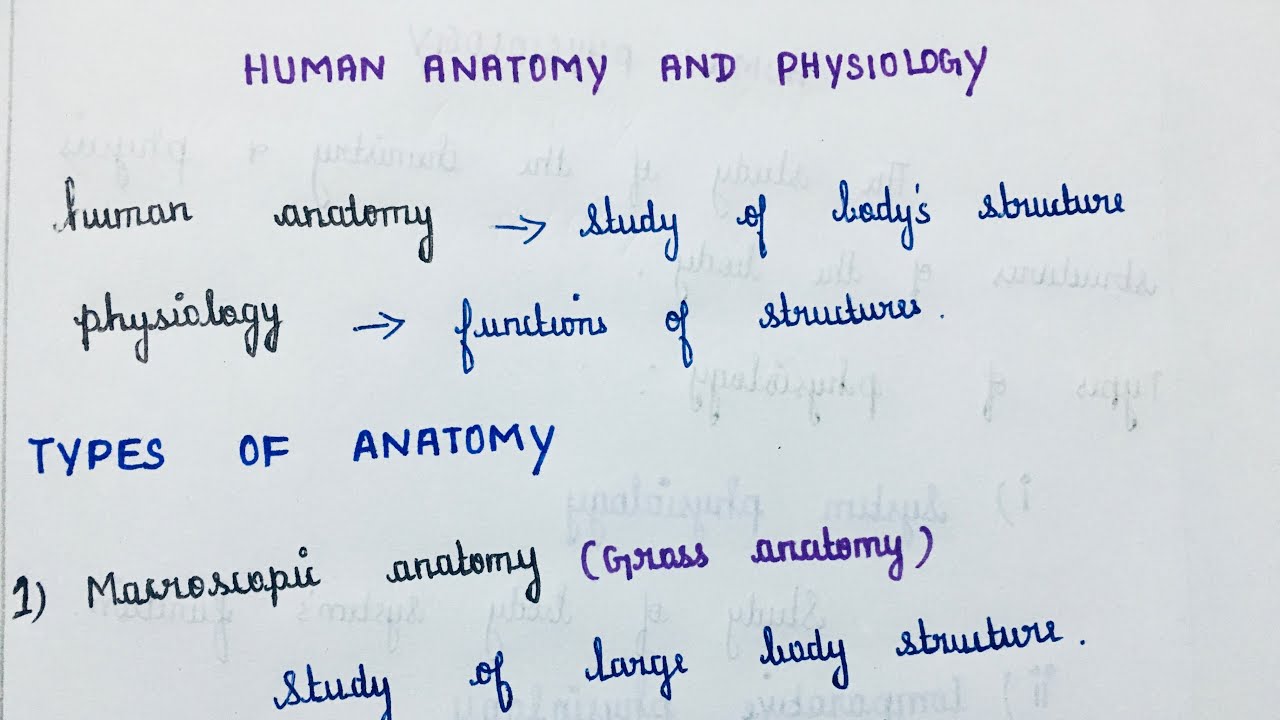 HUMAN ANATOMY AND PHYSIOLOGY
human anatomy → study of body's structure
physiology → functions of structures.
TYPES OF ANATOMY
1) Macroscopic anatomy (Gross anatomy)
study of large body structure.